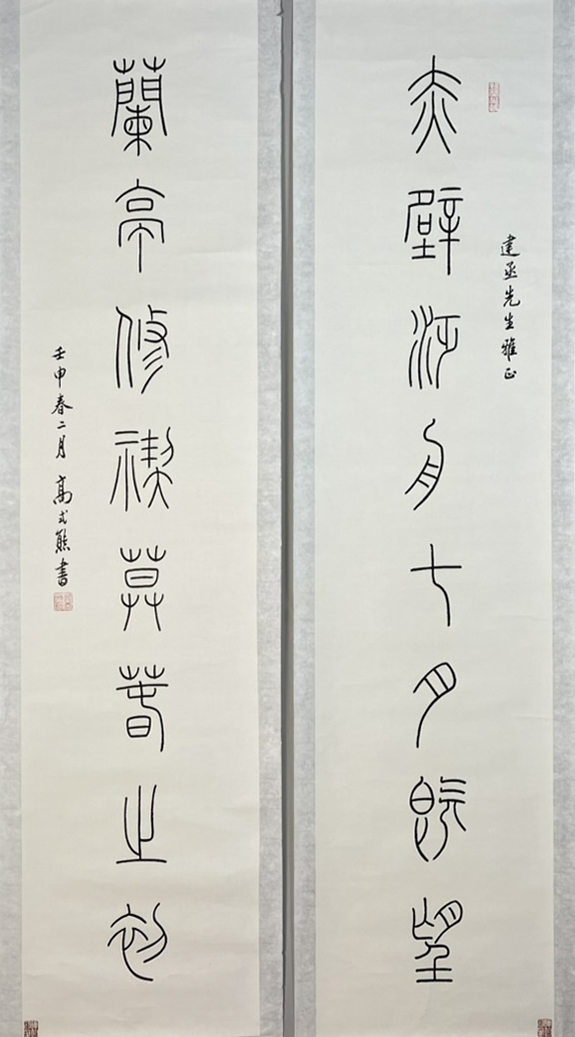 赤壁汎舟七月既望
建丞先生雅正
蘭亭修禊莫春之初
壬申春二月 高式熊書